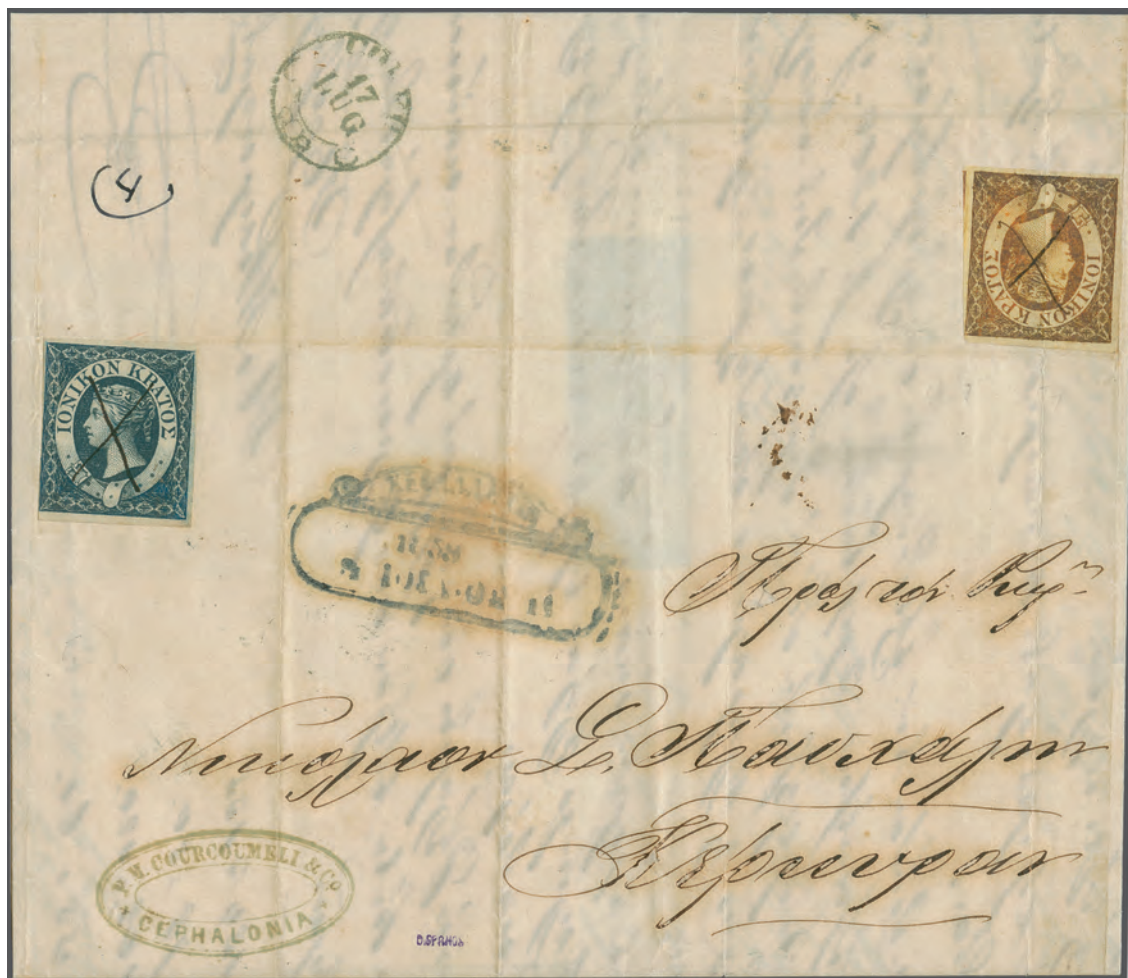 17
LUG
4
ΙΟΝΙΚΟΝ ΚΡΑΤΟΣ
ΙΟΝΙΚΟΝ ΚΡΑΤΟΣ
Πρὸς τὸν Κυρ^ν
Νικόλαον Σ. Πασχάλην
Κέρκυραν
P. M. COURCOUMELI & Cº
CEPHALONIA
D.SPANOS